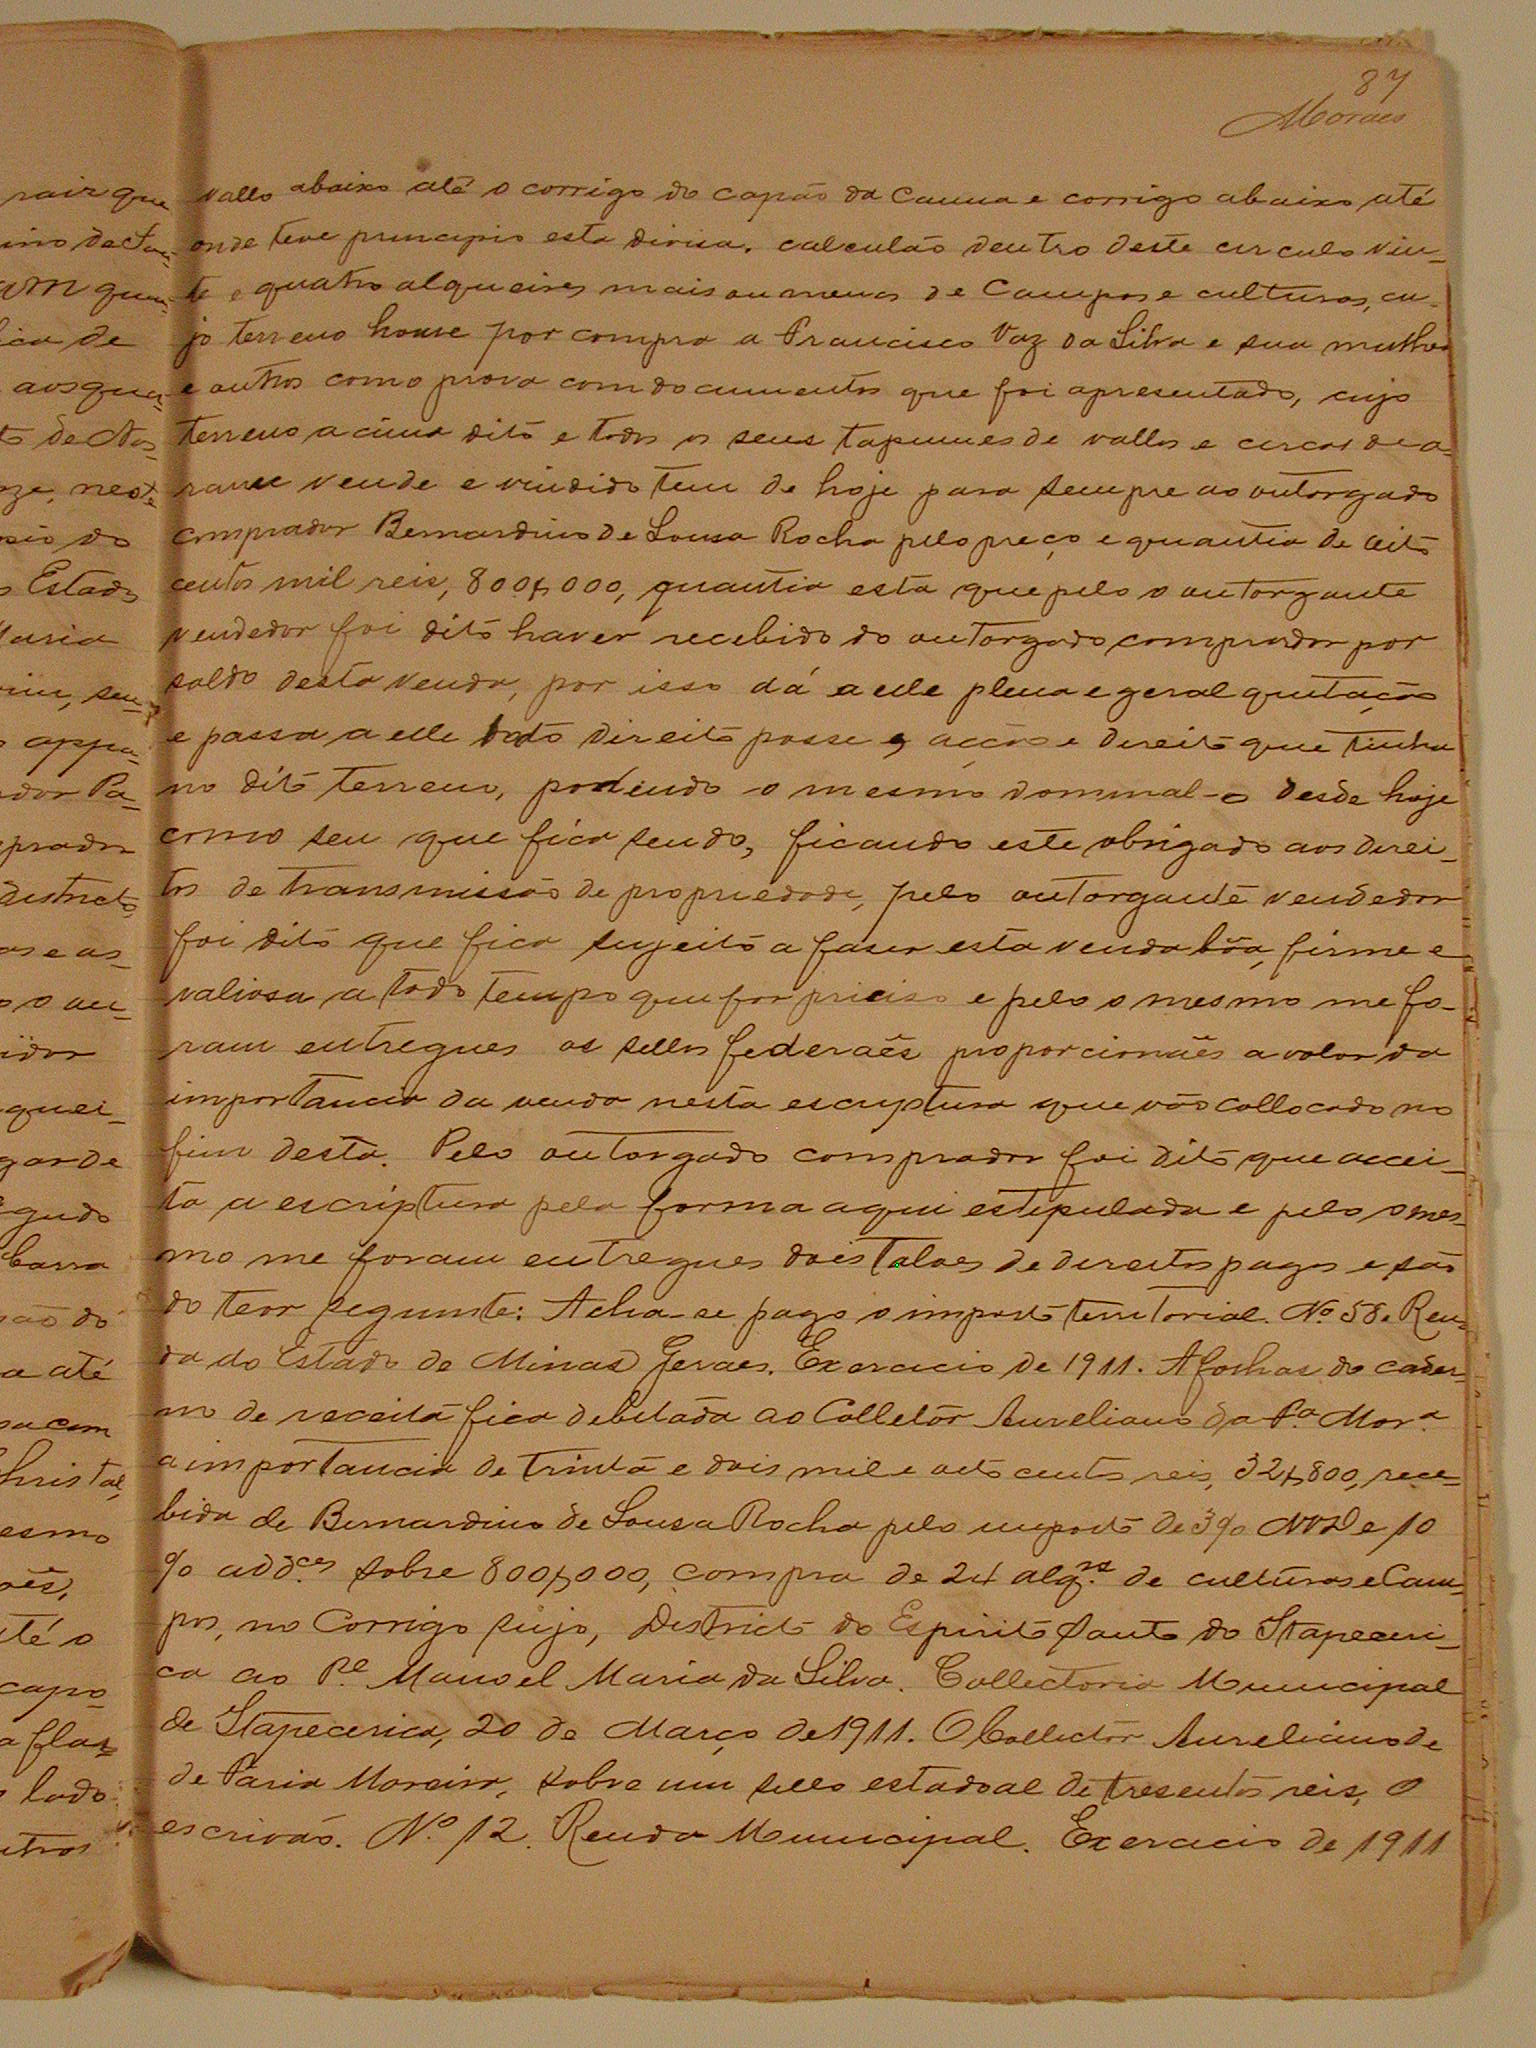 87
Moraes
vallo abaixo até o corrigo do capão da Canna e corrigo abaixo até
onde teve principio esta divisa. calculão dentro deste circulo vin-
te e quatro alqueires mais ou menos de Campos e culturas, cu-
jo terreno houve por compra a Francisco Vaz da Silva e sua mulher
e outros como prova com documentos que foi apresentado, cujo
terreno acima dito e todos os seus tapumes de vallos e cercas de a-
rame vende e vindido tem de hoje para sempre ao outorgado
comprador Bernardino de Sousa Rocha pelo preço e quantia de oito
centos mil reis, 800$000, quantia esta que pelo o outorgante
vendedor foi dito haver recebido do outorgado comprador por
saldo desta venda, por isso dá a elle plena e geral quitação
e passa a elle todo direito posse e acção e direito que tinha
no dito terreno, podendo o mesmo dominal-o desde hoje
como seu que fica sendo, ficando este obrigado aos direi-
tos de transmissão de propriedade, pelo outorgante vendedor
foi dito que fica sujeito a faser esta venda bôa, firme e
valiosa a todo tempo que for priciso e pelo o mesmo me fo-
ram entregues os sellos federaes proporcionaes a valor da
importancia da venda nesta escriptura que vão collocado no
fim desta. Pelo outorgado comprador foi dito que accei-
ta a escriptura pela forma aqui estipulada e pelo o mes-
mo me foram entregues dois taloes de direitos pagos e são
do teor seguinte: Acha-se pago o imposto territorial. Nº 58. Ren-
da do Estado de Minas Geraes. Exercicio de 1911. A folhas do cader-
no de receita fica debitada ao Colletor Aureliano da Fª Morª
a importancia de trinta e dois mil e oito centos reis, 32$800, rece-
bida de Bernardino de Sousa Rocha pelo imposto de 3% e 10
% add.ces sobre 800$000, compra de 24 alq.rs de culturas e Cam-
pos, no Corrigo sujo, Districto do Espirito Santo do Itapeceri-
ca ao Pe. Manoel Maria da Silva. Collectoria Municipal
de Itapecerica, 20 de Março de 1911. O Collector Aureliano de
de Faria Moreira, sobre um sello estadoal de tresentos reis, O
escrivão. Nº 12. Renda Municipal. Exercicio de 1911